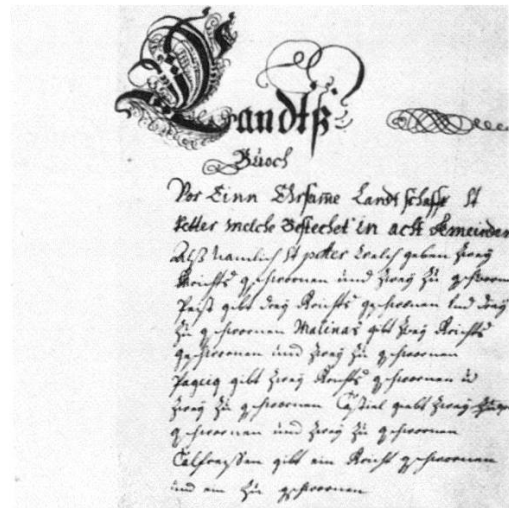 Landtß
Buoch
Vor Einn Ehrsame Landtschafft St
Petter welche Bestechet in acht Gemeinden
Alß Namlich St petter welch geben zweÿ
Grichts geschwornen und zweÿ zu geschwornen
Peist gibt dreÿ Grichts geschwornen und dreÿ
zu geschwornen Malinas gibt zweÿ Grichts
geschwornen und zweÿ zu geschwornen
Pagig gibt zweÿ Grichts geschwornen
zweÿ zu geschwornen Castiel gibt zweÿ
geschwornen und zweÿ zu geschwornen
Calfreissen gibt ein Gricht geschwornen
und ein zu geschwornen